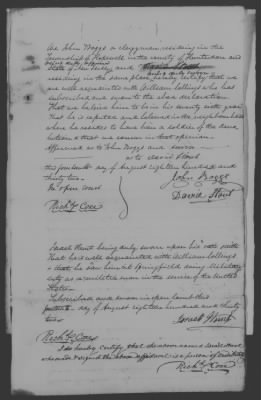 We John Boggs a clergyman residing in the
Township of Hopewell in the county of Hunterdon and
State of New Jersey and
residing in the same place hereby certify that we
are well acquainted with William Collings who has
subscribed and sworn to the above declaration
That we believe him to be seventy years
that he is reputed and believed in the neighborhood
where he resides to have been a soldier of the
and that we concur in that opinion
Affirmed as to John Boggs and sworn
as to David Stout
this fourteenth day of August eighteen hundred and
thirty two.
In open court
John Boggs
David Stout
Rich'd Coxe
Israel Hunt being duly sworn upon his oath saith
That he is well acquainted with William Collings
& that he saw him at Springfield doing Military
duty as a militia man in the service of the United
States.
Subscribed and sworn in open Court this
day of August eighteen hundred and thirty
two
Israel Hunt
Rich'd Coxe
I do hereby certify that
who signed the above affidavit is a person of
Rich'd Coxe